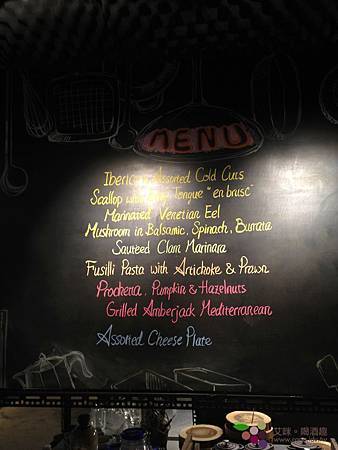 MENU
Iberico Assorted Cold Cuts
Scallop with Tongue "en brusc"
Marinated Venetian Eel
Mushroom in Balsamic, Spinach, Burrata
Sauteed Clam Marinara
Fusilli Pasta with Artichoke & Prawn
Pancketta, Pumpkin & Hazelnuts
Grilled Amberjack Mediterranean
Assorted Cheese Plate
艾咪。喝酒趣